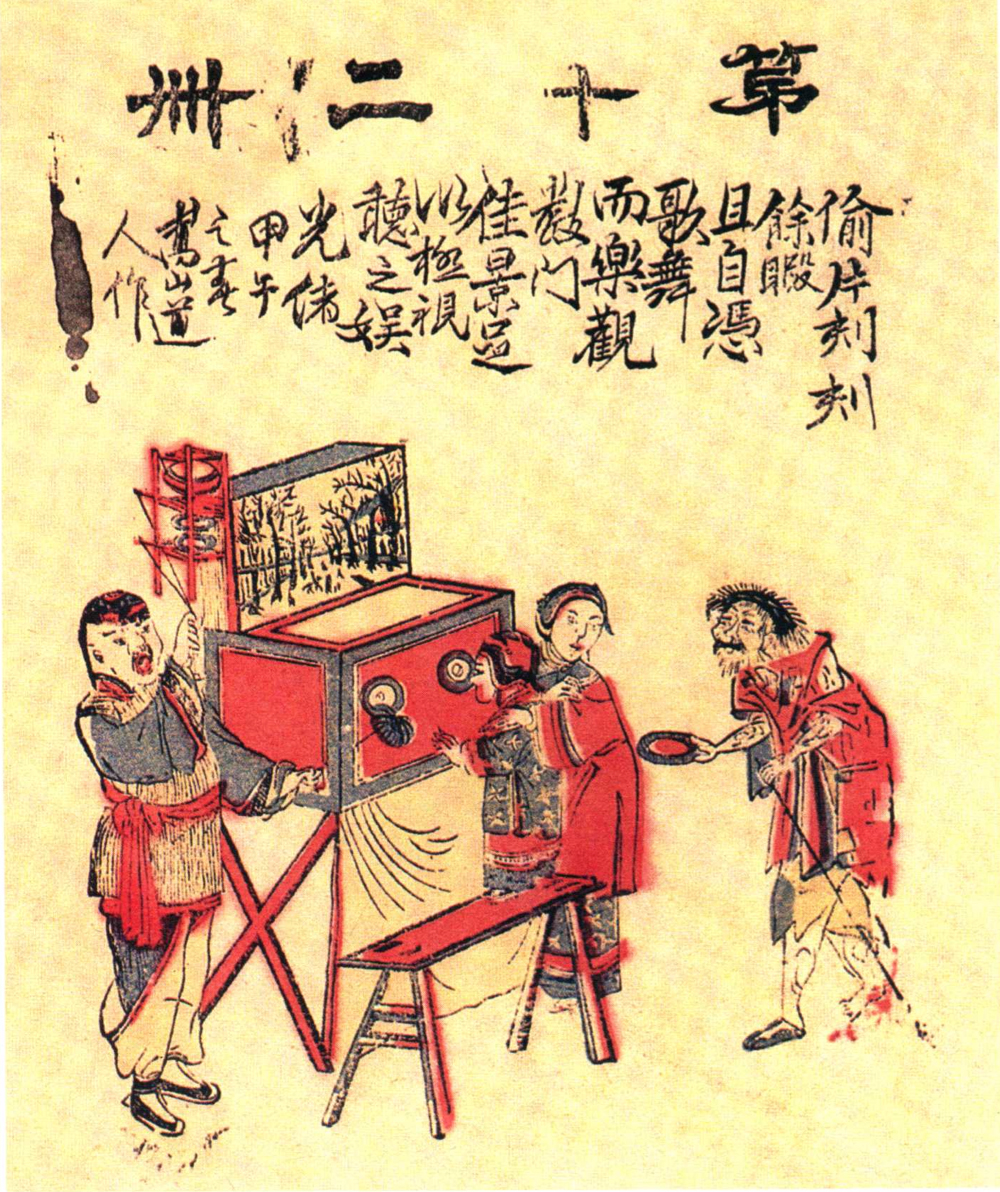 第十二卅
偷片刻刻
餘暇
且自憑
歌舞
而樂觀
數门
佳景足
以極視
聽之娱
光绪
甲午
之春
嵩山道
人作